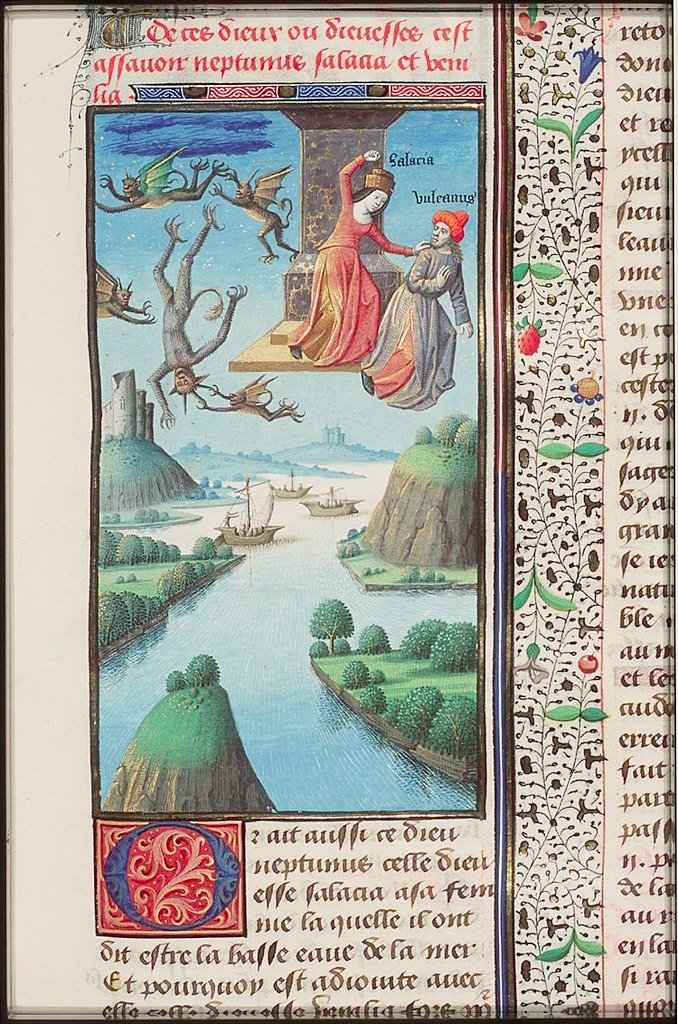 De ces dieux ou dieuesses cest
assauoir neptunus salacia et veni
lia
Salacia
vulcanus
Or ait aussi ce dieu
neptunus celle dieu
esse salacia a sa fem
me la quelle il ont
dit estre la basse eaue de la mer
Et pourquoy est adiouite auec
elle celle dieuesse
reto
don
dieu
et re
ycell
qui
sieur
leaue
nne
vne
en co
est p
ceste
n. d
qui
sage
dy a
gran
se ie
natu
ble
au m
et le
cuid
erreu
fait
part
pass
n. p
de la
au r
en la
si ra
quo